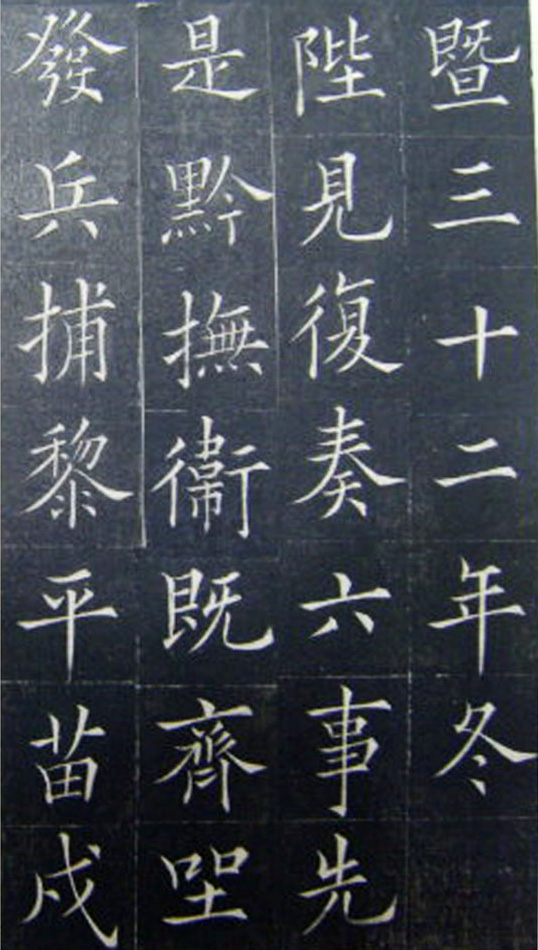 暨三十二年冬
陛見復奏六事先
是黔撫衛既齊坐
發兵捕黎平苗戍